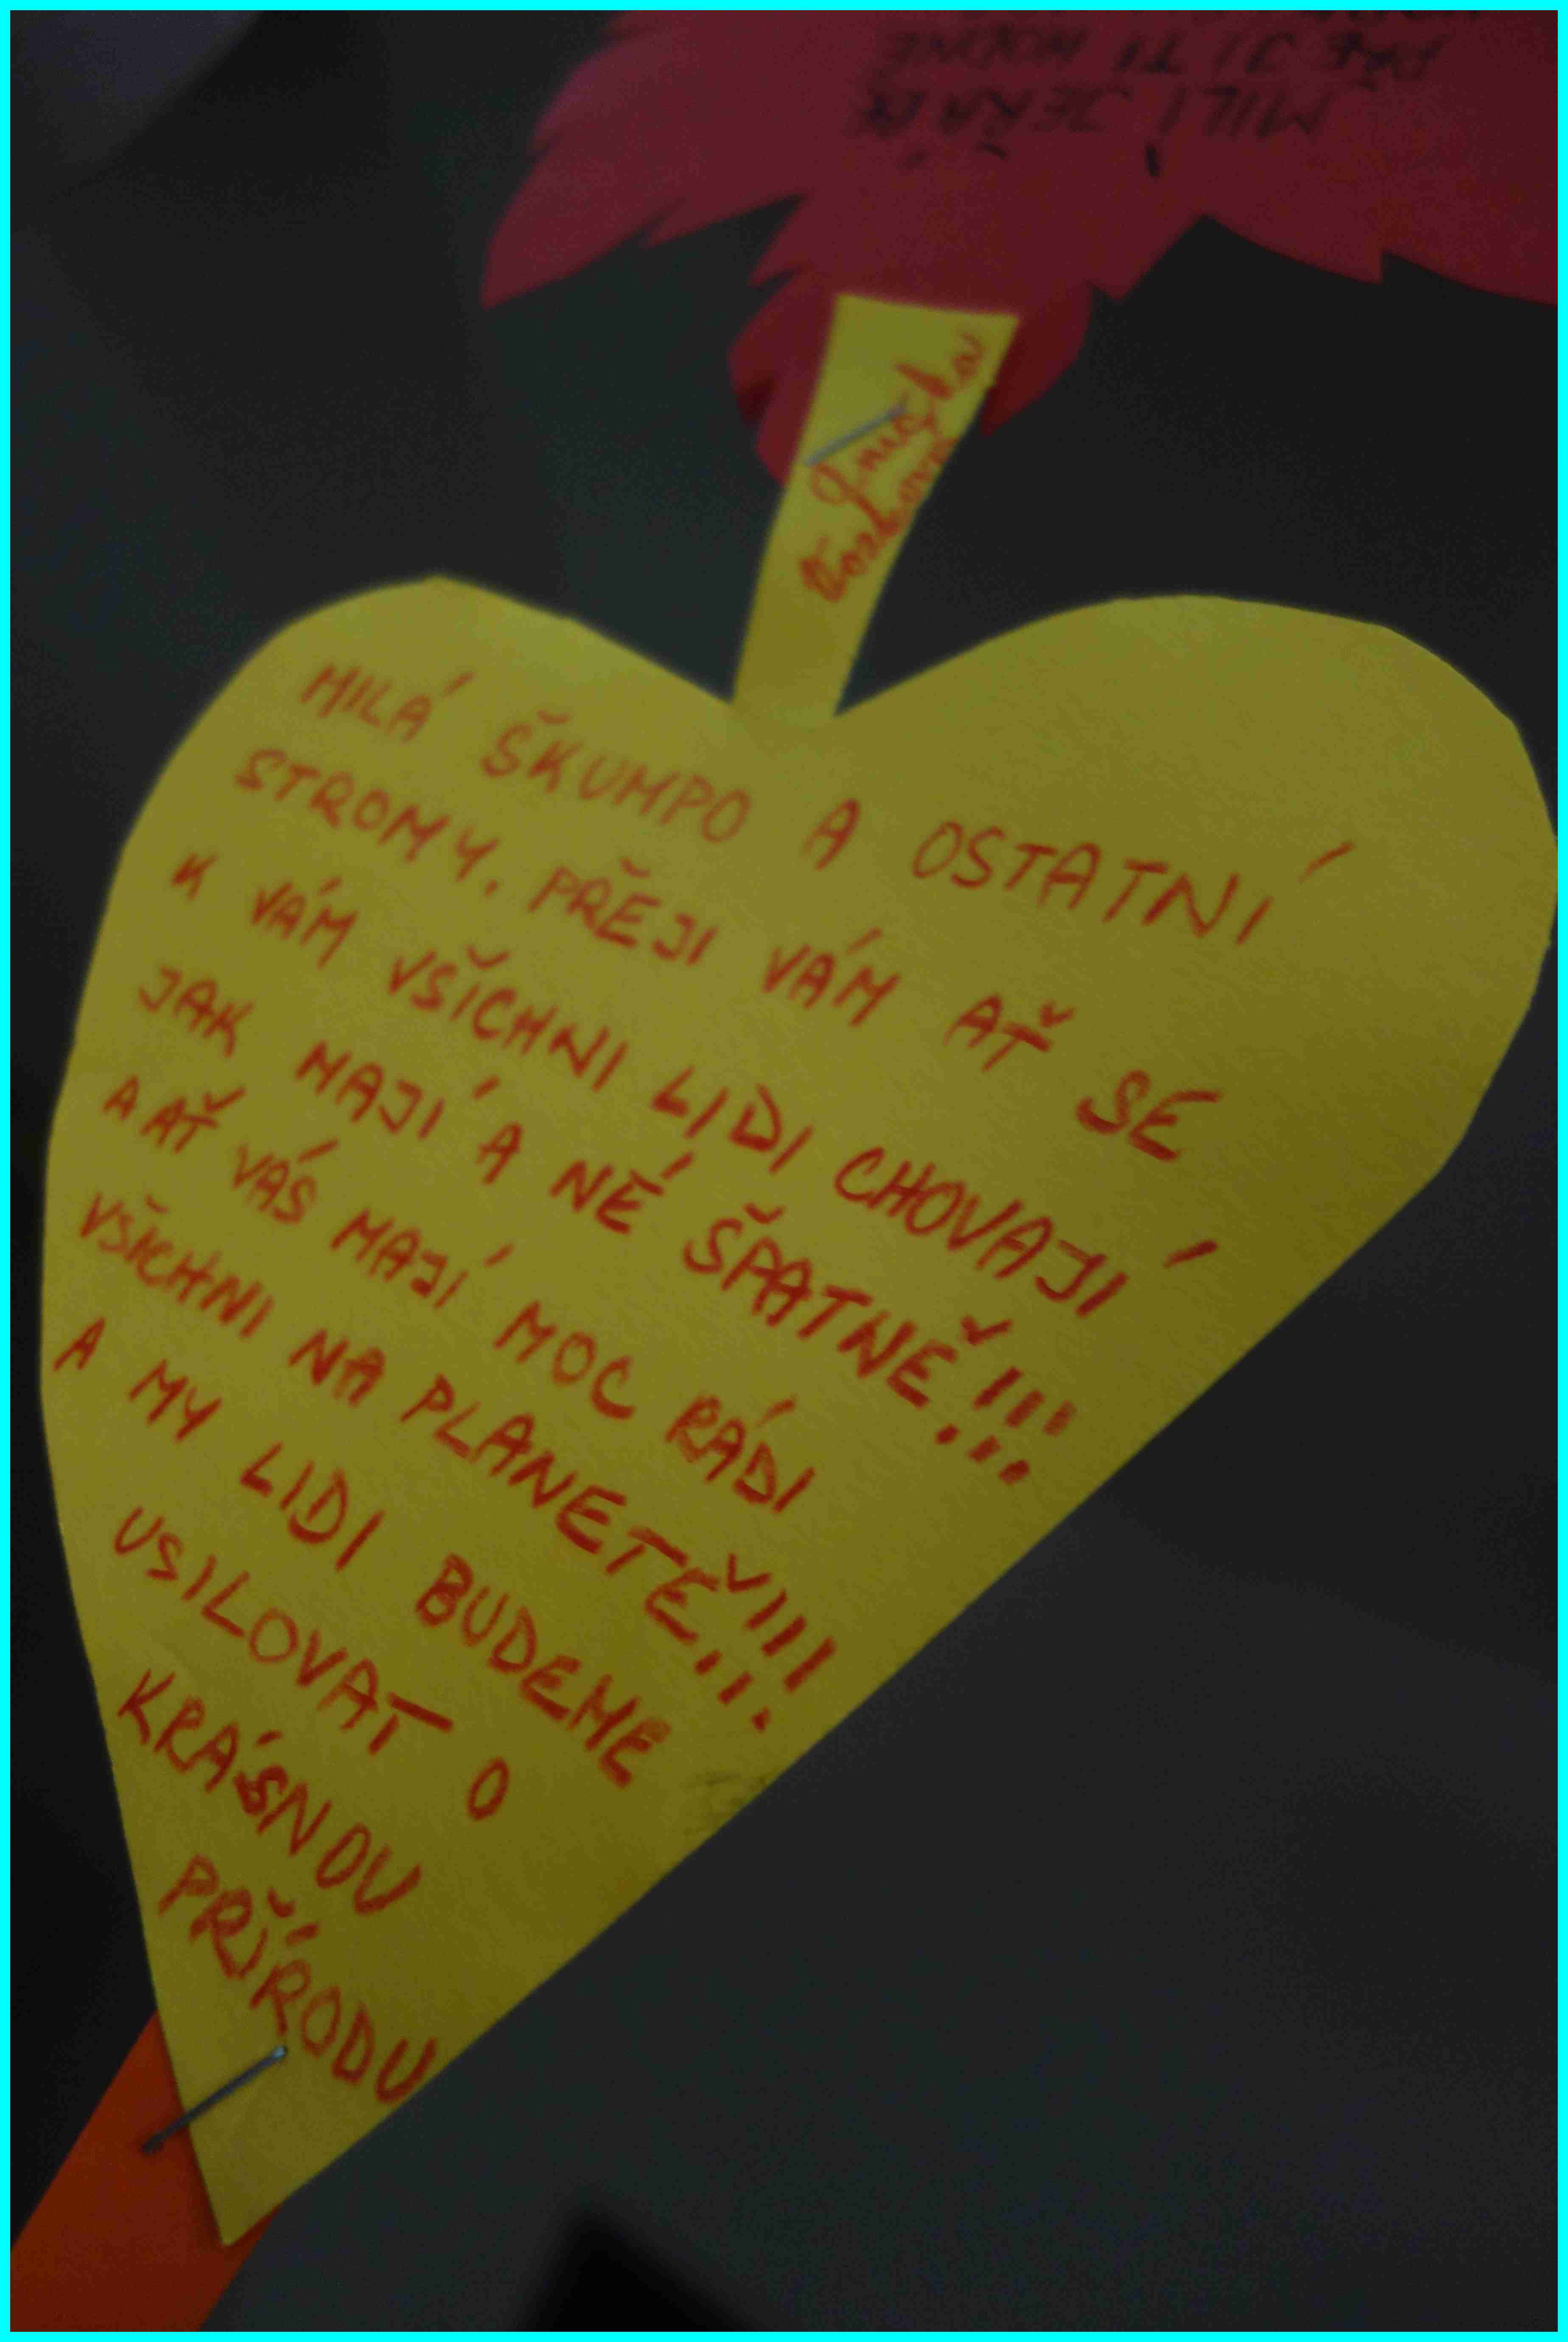 MILÍ JEŘÁB
PŘEJI TI HODNĚ
Anička
MILÁ ŠKUMPO A OSTATNÍ
STROMY. PŘĚJI VÁM AŤ SE
K VÁM VŠICHNI LIDI CHOVAJÍ
JAK MAJÍ A NÉ ŠPATNĚ!!!
A AŤ VÁS MAJÍ MOC RÁDI
VŠICHNI NA PLANETĚ!!!
A MY LIDI BUDEME
USILOVAT O
KRÁSNOU
PŘÍRODU